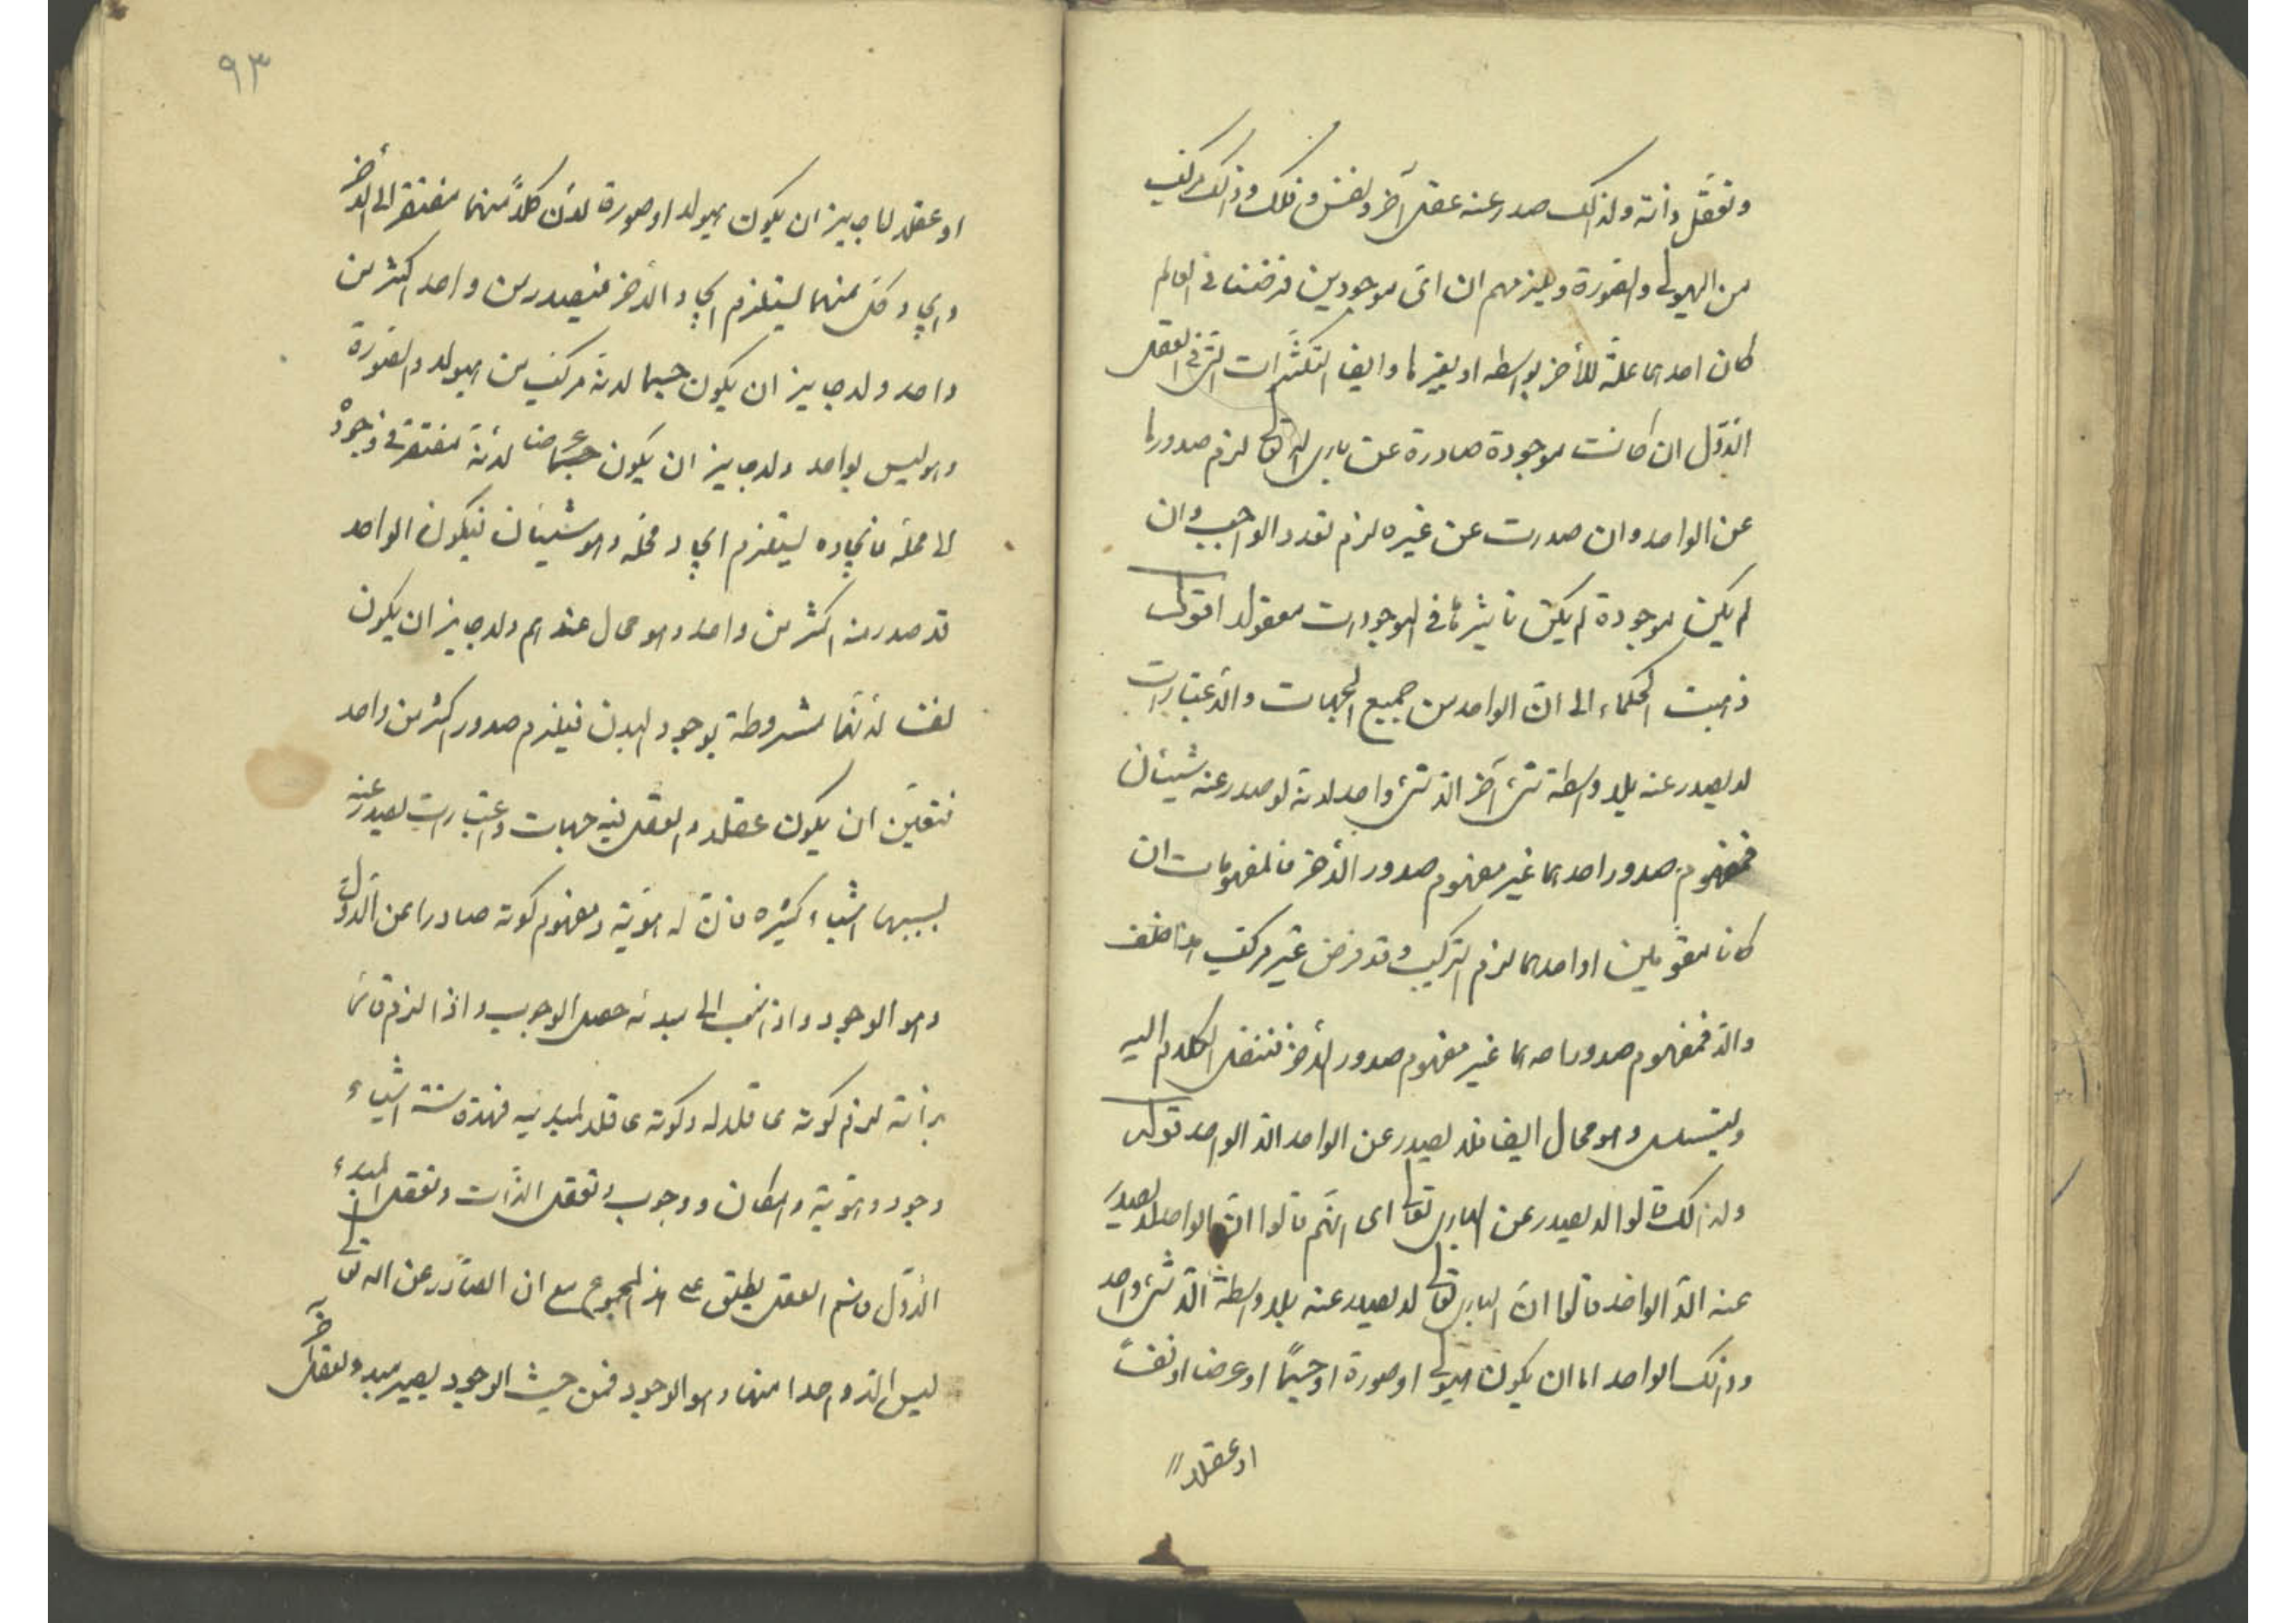 وتعقّل ذاته ولذلك صدر عنه عقل آخر ونفس وفلك وذلك مركّب
من الهيولى والصّورة ويلزمهم ان اىّ موجودين فرضنا فى العالم
كان احدهما علّة للأخر بواسطه او بغيرها وايضا التكثّرات الّتى فى العقل
الأوّل ان كانت موجودة صادرة عن بارى الله تعالى لزم صدورها
عن الواحد وان صدرت عن غيره لزم تعدد الواجب وان
لم يكن موجودة لم يكن تاثيرها فى الموجودات معقولا اقول
ذهبت الحكماء الى انّ الواحد من جميع الجهات والأعتبارات
لا يصدر عنه بلا واسطة شىء آخر الا شىء واحد لانه لو صدر عنه شيئان
فمفهوم صدور احدهما غير مفهوم صدور الأخر فالمفهومات ان
كانا مقوّمين او احدهما لزم التركيب وقد فرض غير مركّب هذا خلف
والا فمفهوم صدور احدهما غير مفهوم صدور الأخر فننقل الكلام اليه
ويتسلسل وهو محال ايضا فلا يصدر عن الواحد الا الواحد قوله
ولذلك قالوا لا يصدر عن البارى تعالى اى انهّم قالوا انّ الواحد لا يصدر
عنه الّا الواحد قالوا انّ البارى تعالى لا يصدر عنه بلا واسطة الّا شىء واحد
وذلك الواحد اما ان يكون هيولى او صورة او جسمًا او عرضا او نفسًا
او عقلا
٩٣
او عقلا لا جايز ان يكون هيولا او صورة لأن كلاًّ منهما مفتقر الى الأخر
وايجاد كلّ منهما يستلزم ايجاد الأخر فيصدر من واحد اكثر من
واحد ولا جايز ان يكون جسما لانه مركّب من الهيولا والصّورة
وهو ليس بواحد ولا جايز ان يكون عرضا لانهّ مفتقر فى وجوده
الى محلّه فايجاده يستلزم ايجاد محلّه وهو شيئان فيكون الواحد
قد صدر منه اكثر من واحد وهو محال عندهم ولا جايز ان يكون
نفسا لأنهّا مشروطة بوجود البدن فيلزم صدور اكثر من واحد
فتعيّن ان يكون عقلا والعقل فيه جهات واعتبارات يصدر عنه
بسببها اشياء كثيره فانّ له هوّية ومفهوم كونه صادرا عن الأوّل
وهو الوجود واذا نسب الى مبدئه حصل الوجوب واذا لزم قائما
بذاته لزم كونه عاقلا له وكونه عاقلا لمبديه فهذه ستة اشياء
وجود وهوّية وامكان ووجوب وتعقل الذّات وتعقل المبدء
الأوّل فاسم العقل يطلق على هذا المجموع مع ان الصّادر عن الله تعالى
ليس الا واحدا منها وهو الوجود فمن حيث الوجود يصير مبدء لعقل آخر